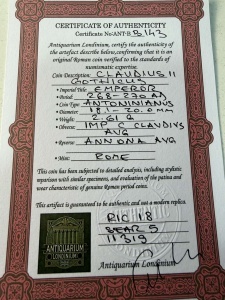 CERTIFICATE OF AUTHENTICITY
Certificate No:ANT-B B143
Antiquarium Londinium, certify the authenticity of
the artefact describe below, confirming that it is an
original Roman coin verified to the standards of
numismatic expertise.
Coin Description: CLAUDIUS II
GOTHICUS
• Imperial Title: EMPEROR
• Period: 268-270 AD
• Coin Type: ANTONINIANUS
• Size: 20.0 MM
• Weight: 2.61 G
• Obverse: IMP C CLAVDIVS
AVG
• Reverse: ANNONA AVG
• Mint: ROME
This coin has been subjected to detailed analysis, including stylistic
comparison with similar specimens, and evaluation of the patina and
wear characteristic of genuine Roman period coins.
This artifact is guaranteed to be authentic and not a modern replica.
RIC 18
SEAR 5
11319
ANTIQUARIUM
LONDINIUM
Antiquarium Londinium